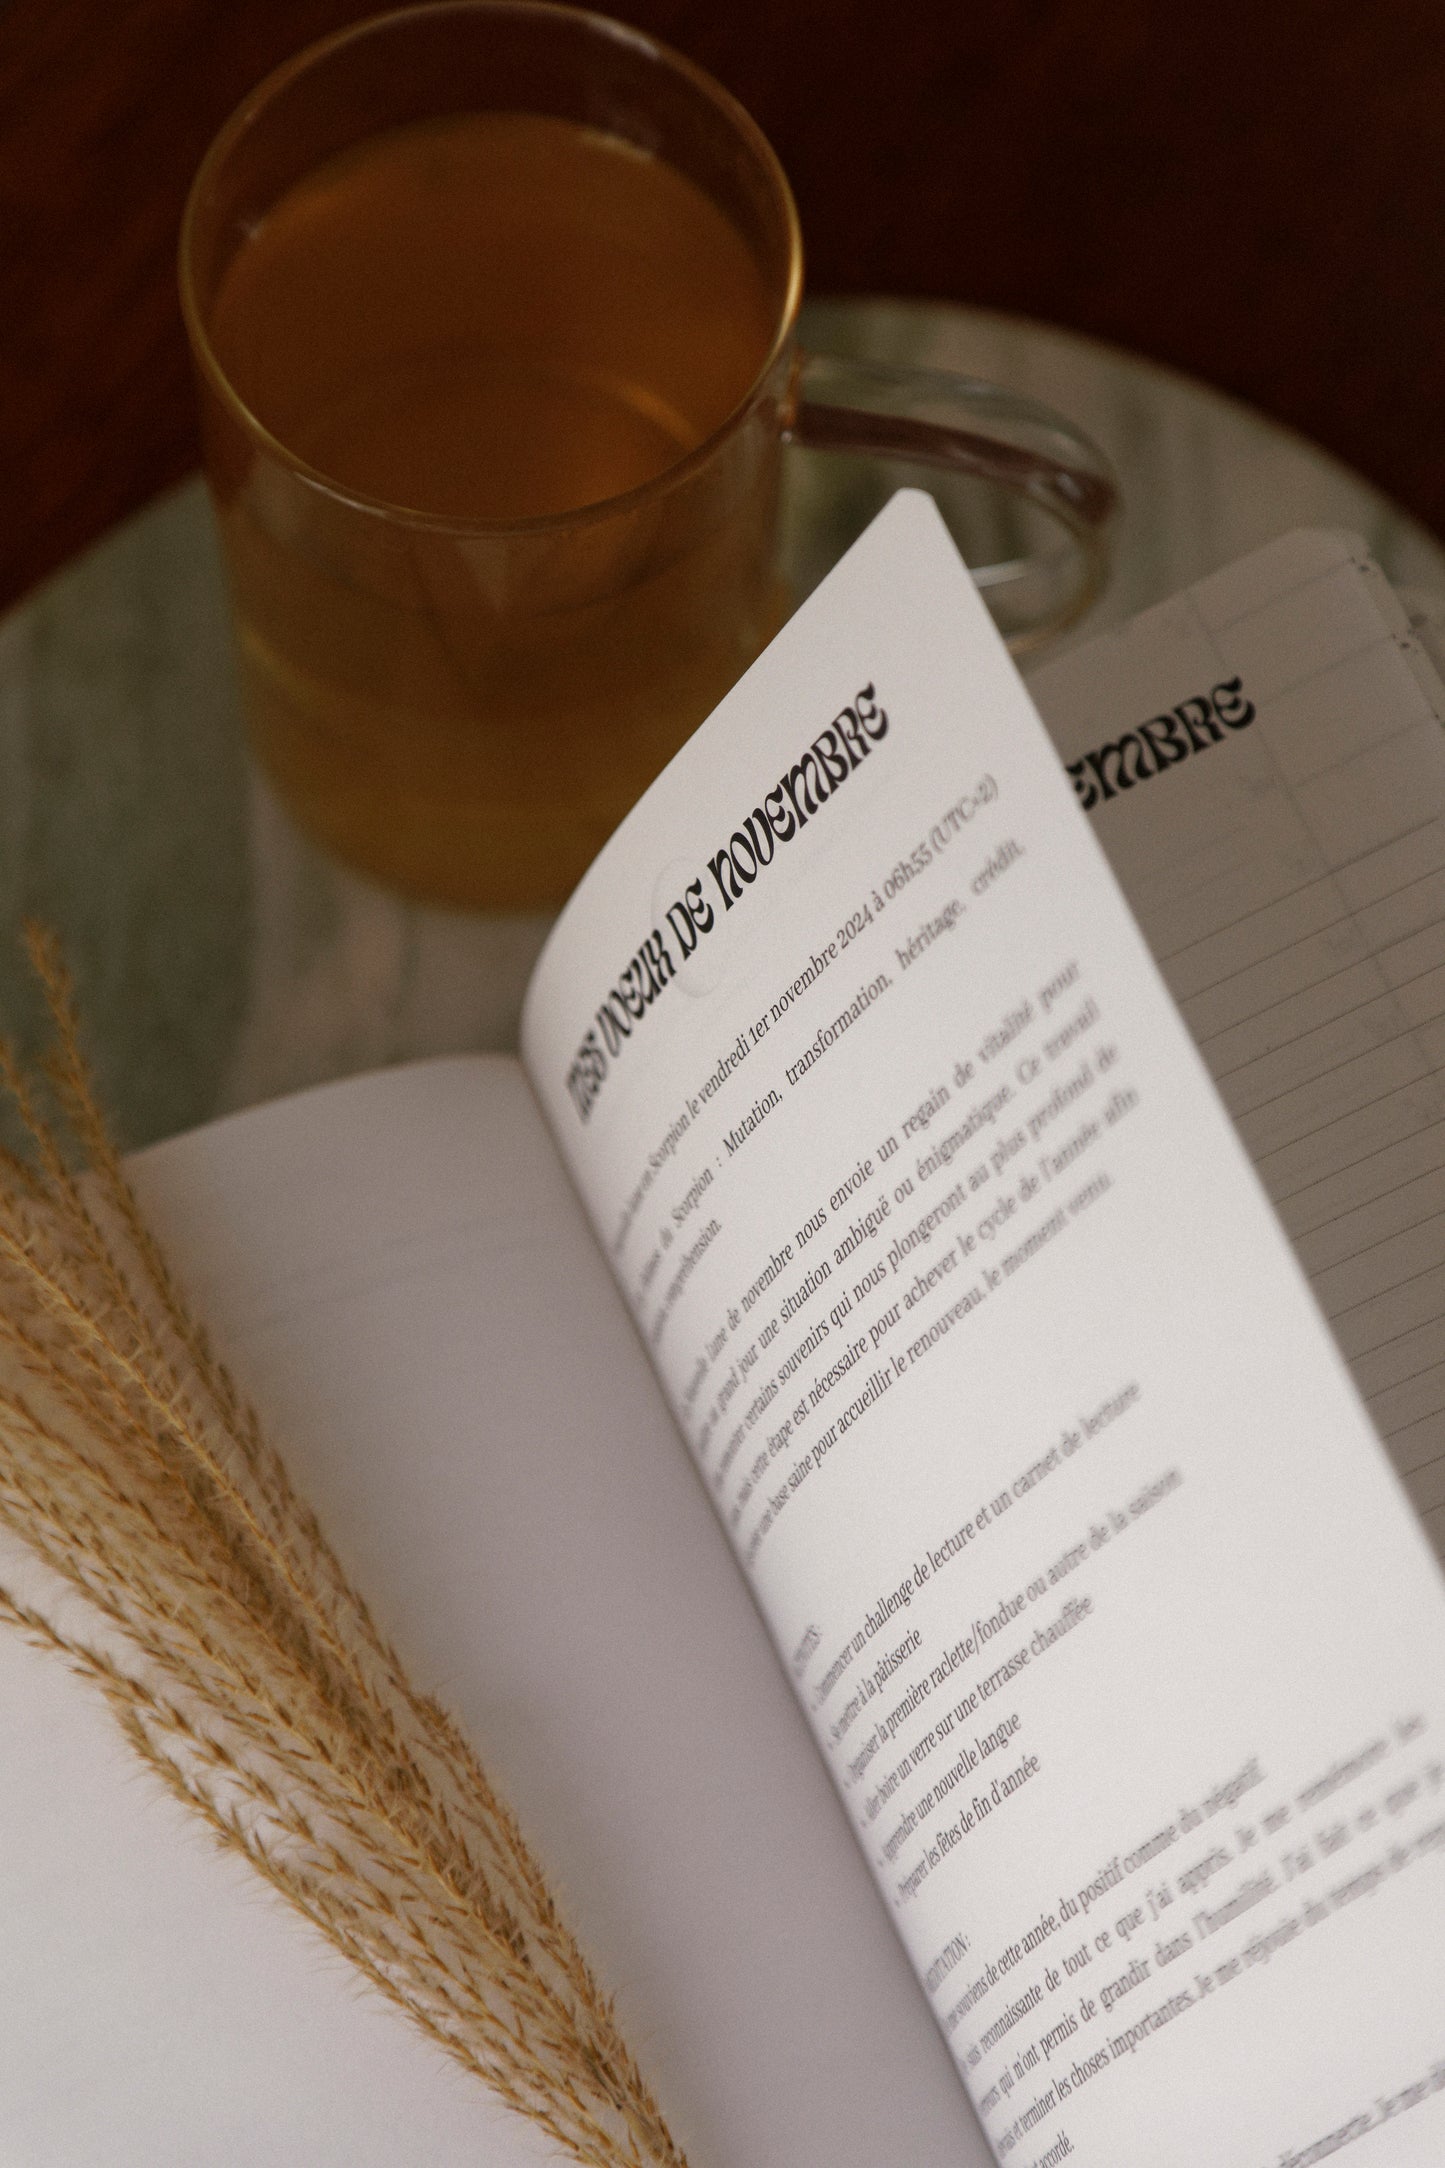 TES VOEUX DE NOVEMBRE
EMBRE
lune en Scorpion le vendredi 1er novembre 2024 à 06h55 (UTC+2)
de Scorpion : Mutation, transformation, héritage, crédit,
compréhension.
Lune de novembre nous envoie un regain de vitalité pour
grand jour une situation ambiguë ou énigmatique. Ce travail
certains souvenirs qui nous plongeront au plus profond de
mais cette étape est nécessaire pour achever le cycle de l'année afin
une base saine pour accueillir le renouveau, le moment venu.
• Commencer un challenge de lecture et un carnet de lecture
• Se mettre à la pâtisserie
• Organiser la première raclette/fondue ou autre de la saison
• Aller boire un verre sur une terrasse chauffée
• Apprendre une nouvelle langue
• Préparer les fêtes de fin d'année
MÉDITATION :
me souviens de cette année, du positif comme du négatif.
suis reconnaissante de tout ce que j'ai appris. Je me remémore les
erreurs qui m'ont permis de grandir dans l'humilité. J'ai fait ce que je
et terminer les choses importantes. Je me réjouie du temps de
accordé.
déconnecte. Je me